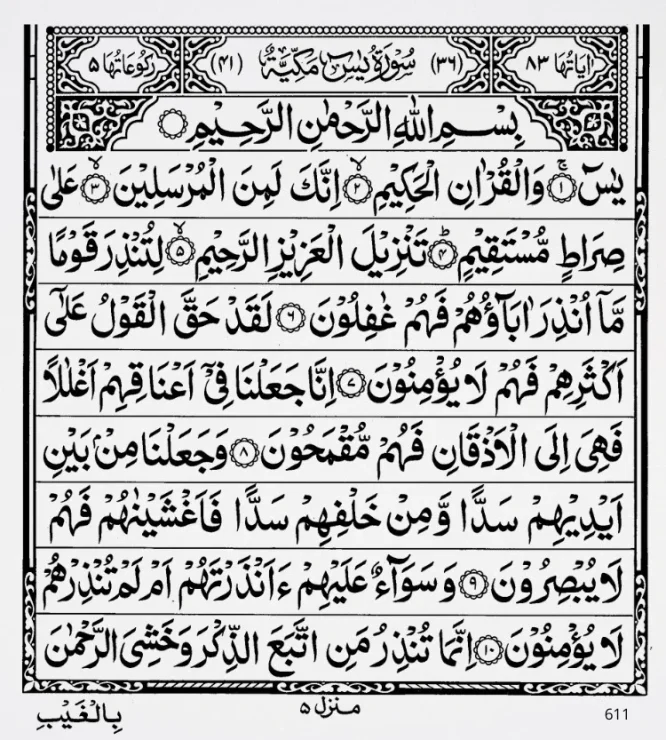 اٰیَاتُهَا ٨٣ (٣٦) سُوْرَةُ يٰسٓ مَكِّيَّةٌ (٤١) رُكُوْعَاتُهَا ٥
بِسْمِ اللهِ الرَّحْمٰنِ الرَّحِيْمِ
يٰسٓ ۚ ﴿١﴾ وَالْقُرْاٰنِ الْحَكِيْمِ ۙ ﴿٢﴾ اِنَّكَ لَمِنَ الْمُرْسَلِيْنَ ۙ ﴿٣﴾ عَلٰى
صِرَاطٍ مُّسْتَقِيْمٍ ؕ ﴿٤﴾ تَنْزِيْلَ الْعَزِيْزِ الرَّحِيْمِ ۙ ﴿٥﴾ لِتُنْذِرَ قَوْمًا
مَّاۤ اُنْذِرَ اٰبَآؤُهُمْ فَهُمْ غٰفِلُوْنَ ﴿٦﴾ لَقَدْ حَقَّ الْقَوْلُ عَلٰۤى
اَكْثَرِهِمْ فَهُمْ لَا يُؤْمِنُوْنَ ﴿٧﴾ اِنَّا جَعَلْنَا فِيْۤ اَعْنَاقِهِمْ اَغْلٰلًا
فَهِيَ اِلَى الْاَذْقَانِ فَهُمْ مُّقْمَحُوْنَ ﴿٨﴾ وَجَعَلْنَا مِنْۢ بَيْنِ
اَيْدِيْهِمْ سَدًّا وَّمِنْ خَلْفِهِمْ سَدًّا فَاَغْشَيْنٰهُمْ فَهُمْ
لَا يُبْصِرُوْنَ ﴿٩﴾ وَسَوَآءٌ عَلَيْهِمْ ءَاَنْذَرْتَهُمْ اَمْ لَمْ تُنْذِرْهُمْ
لَا يُؤْمِنُوْنَ ﴿١٠﴾ اِنَّمَا تُنْذِرُ مَنِ اتَّبَعَ الذِّكْرَ وَخَشِيَ الرَّحْمٰنَ
بِالْغَيْبِ منزل ٥ 611